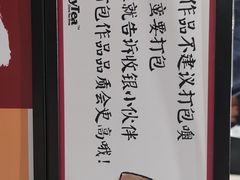 作品不建议打包噢
需要打包
就告诉收银小伙伴
打包作品品质会更高哦！